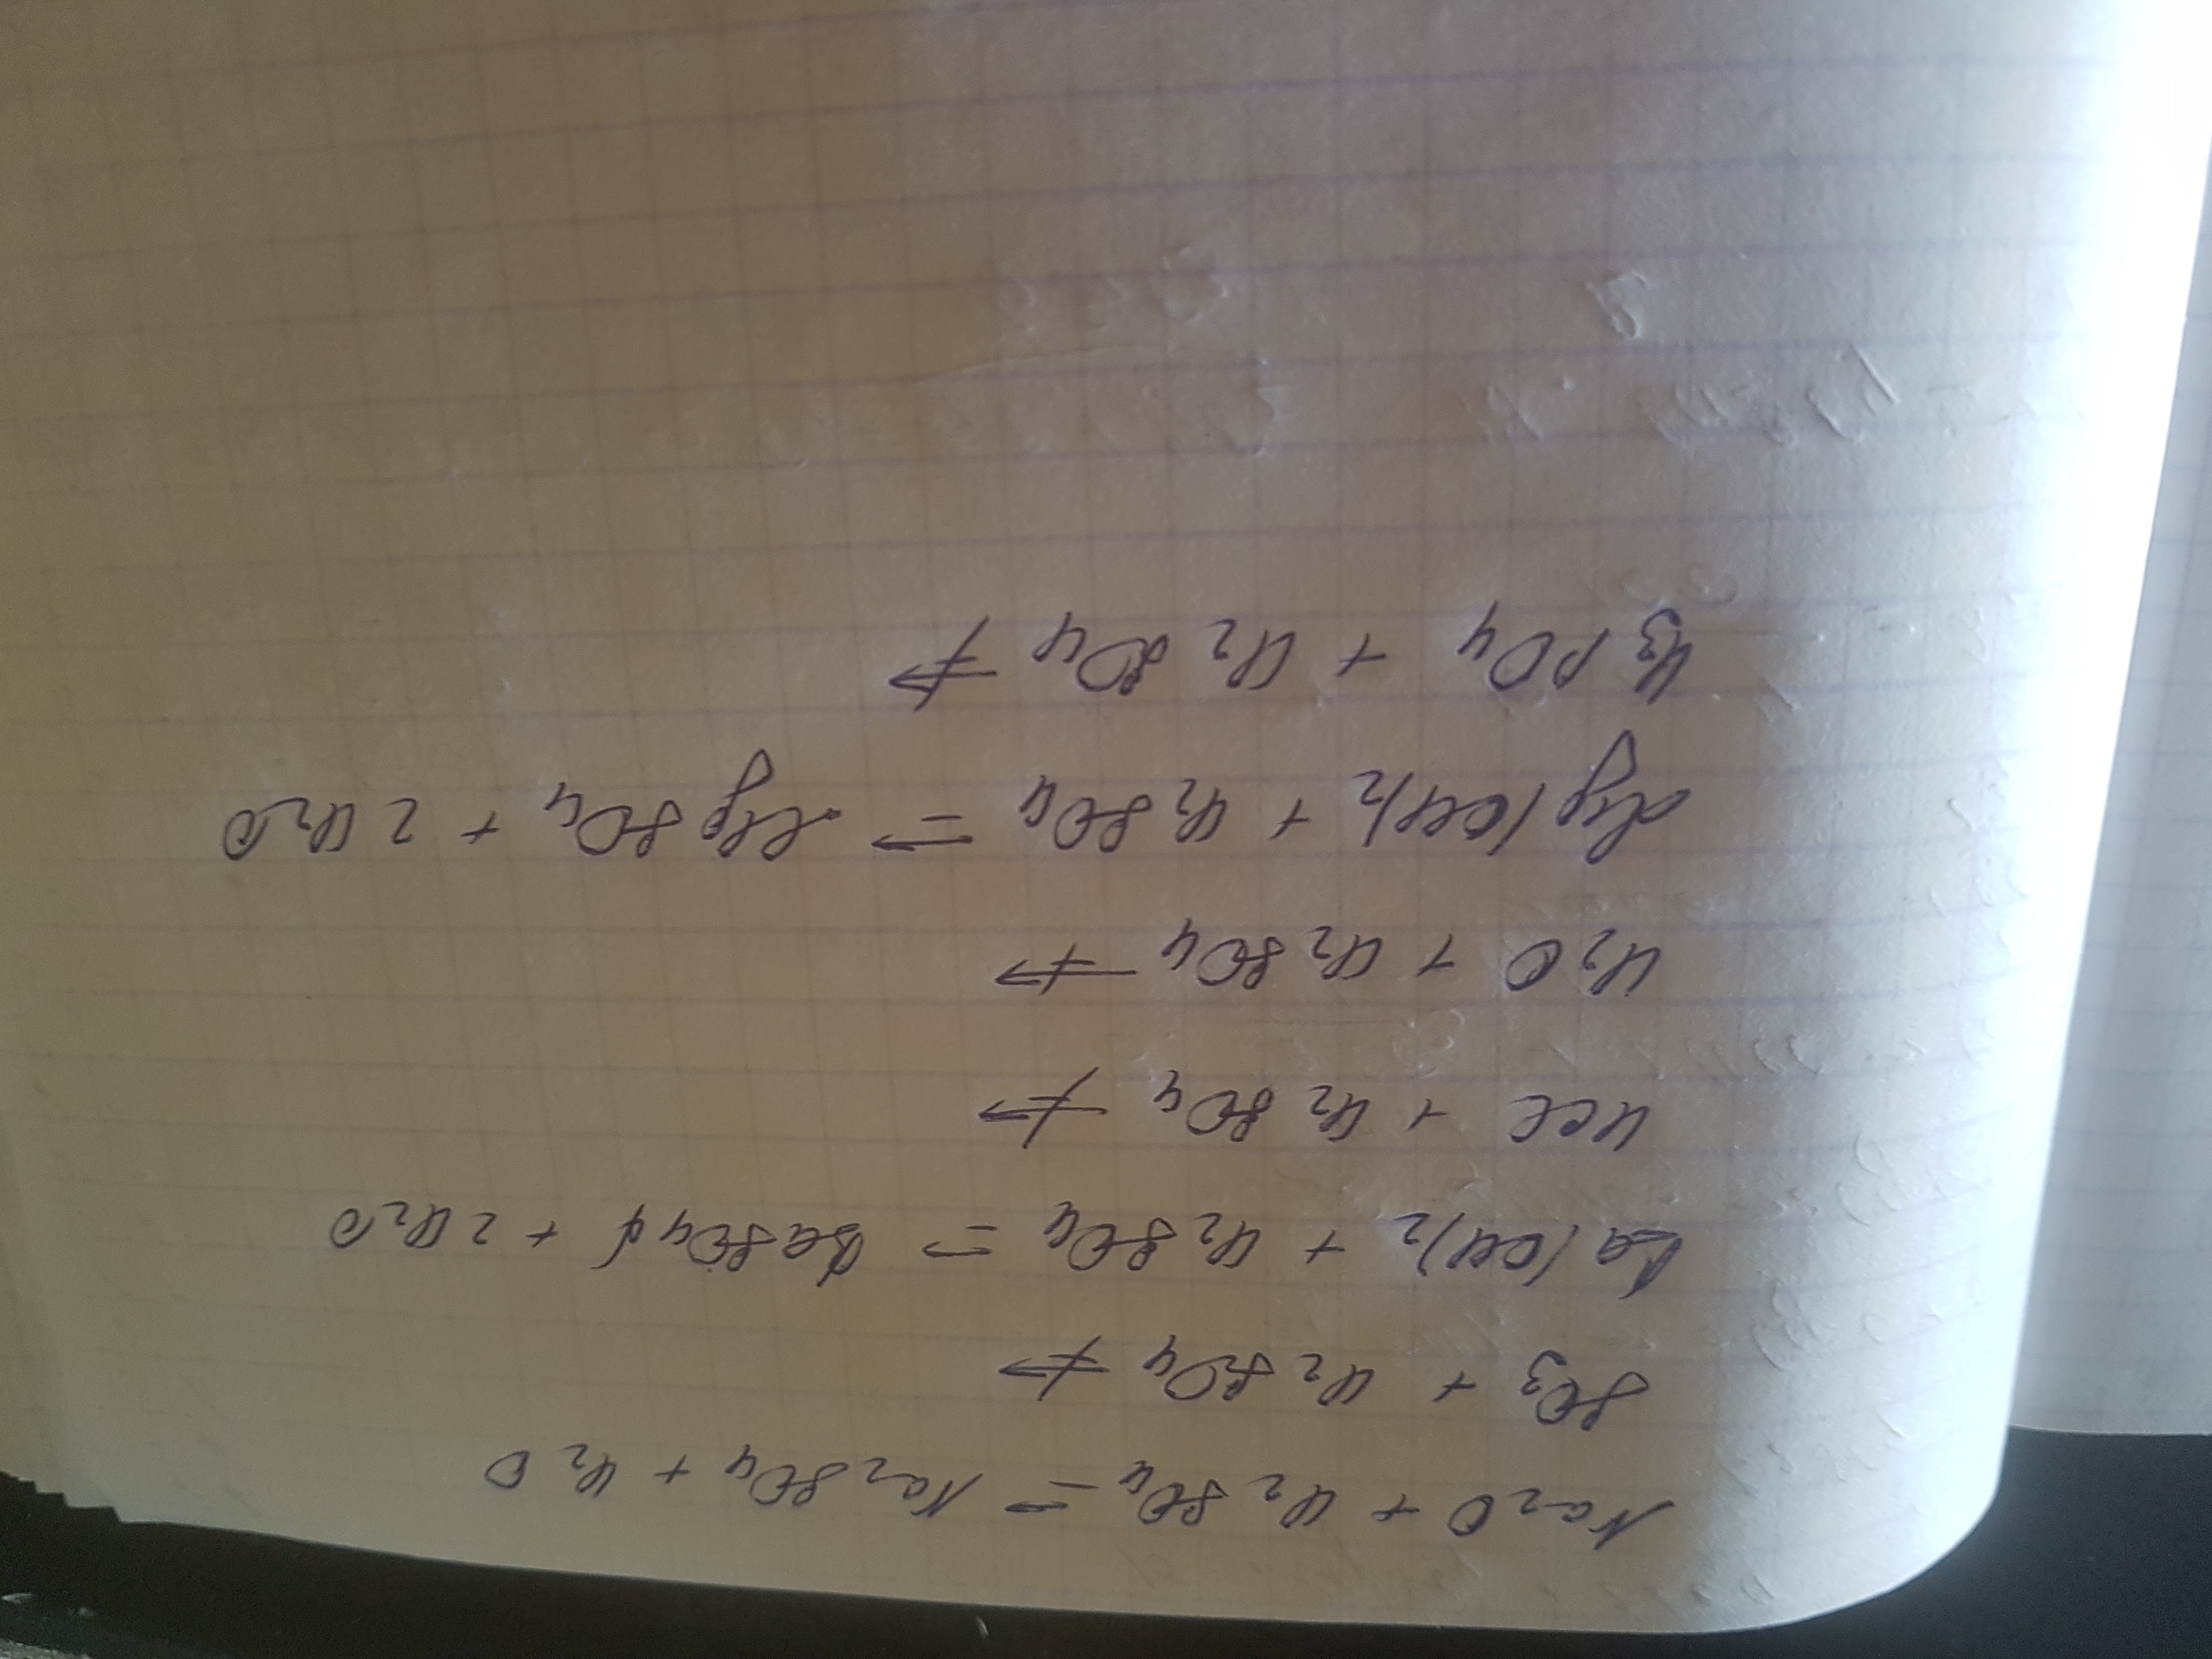 Na₂O + H₂SO₄ = Na₂SO₄ + H₂O
SO₃ + H₂SO₄ ≠>
Ba(OH)₂ + H₂SO₄ = BaSO₄↓ + 2H₂O
HCl + H₂SO₄ ≠>
H₂O + H₂SO₄ ≠>
Mg(OH)₂ + H₂SO₄ => MgSO₄ + 2H₂O
H₃PO₄ + H₂SO₄ ≠>